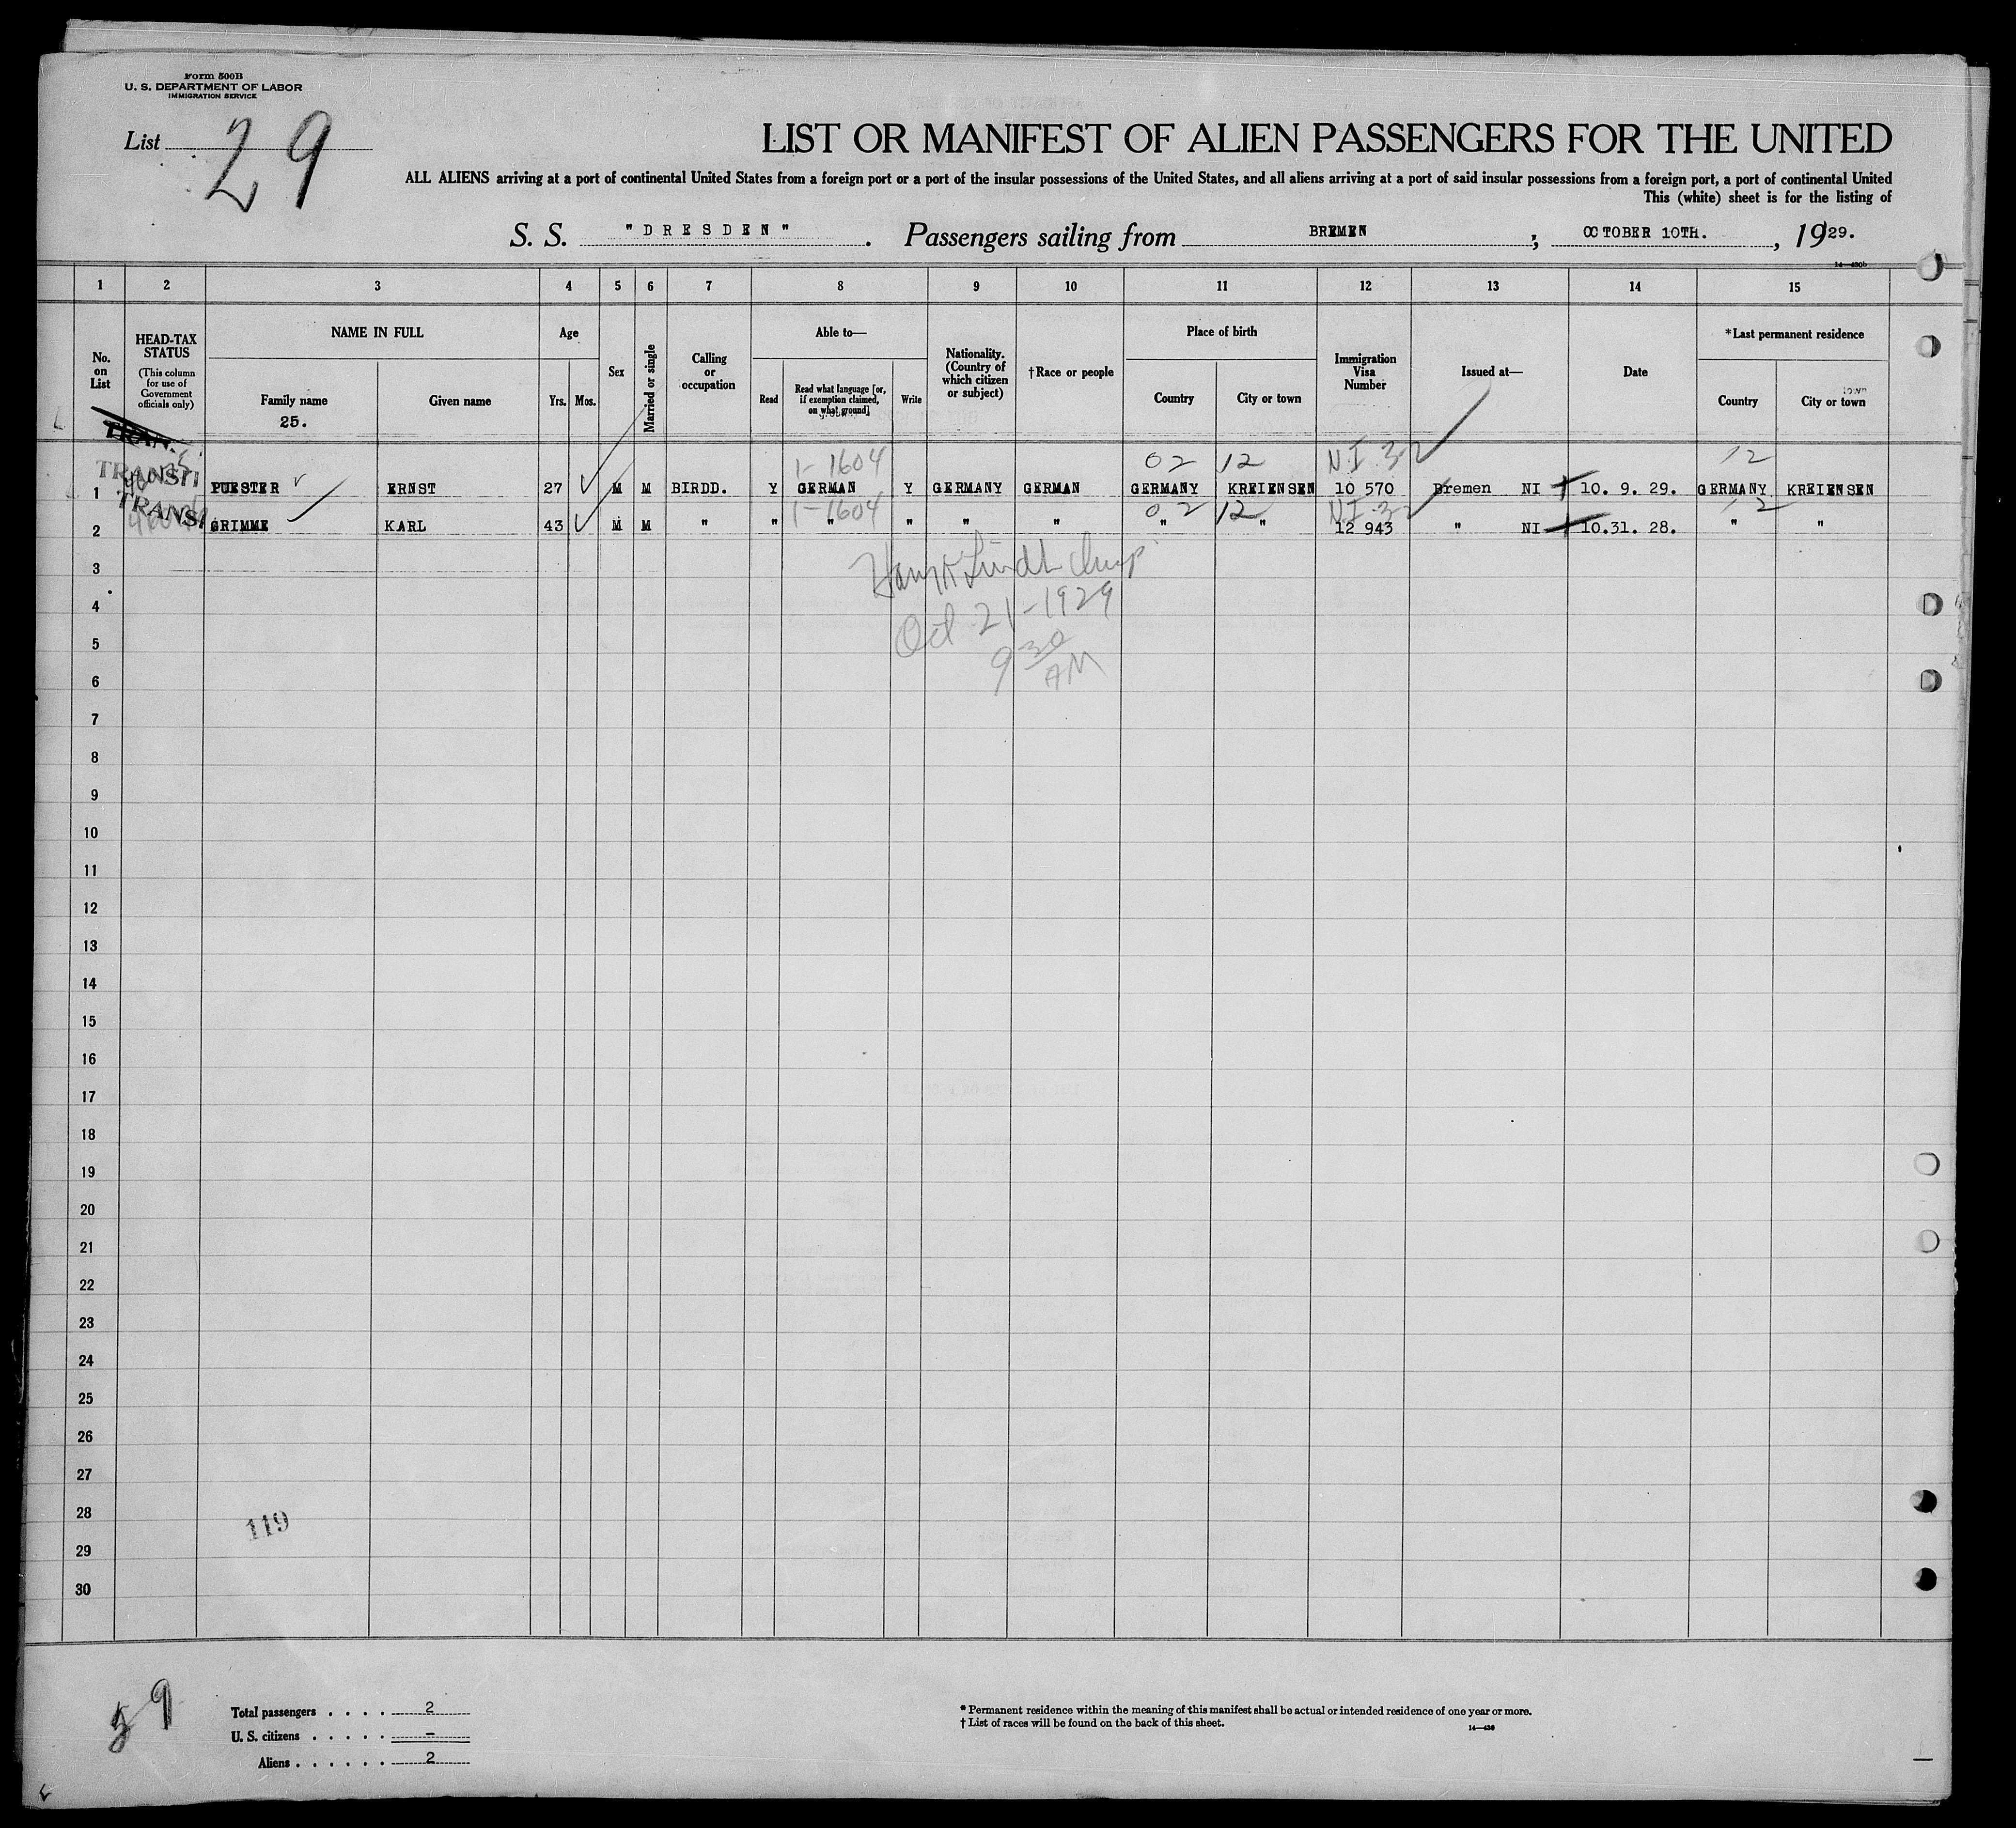 Form 500B
U. S. DEPARTMENT OF LABOR
IMMIGRATION SERVICE
List 29
LIST OR MANIFEST OF ALIEN PASSENGERS FOR THE UNITED
ALL ALIENS arriving at a port of continental United States from a foreign port or a port of the insular possessions of the United States, and all aliens arriving at a port of said insular possessions from a foreign port, a port of continental United
This (white) sheet is for the listing of
S. S. "DRESDEN" . Passengers sailing from BREMEN , OCTOBER 10TH. , 1929.
14—430b
1 2 3 4 5 6 7 8 9 10 11 12 13 14 15
No. on List
HEAD-TAX STATUS
(This column for use of Government officials only)
NAME IN FULL
Family name
25.
Given name
Age
Yrs. Mos.
Sex
Married or single
Calling or occupation
Able to—
Read
Read what language [or, if exemption claimed, on what ground]
Write
Nationality. (Country of which citizen or subject)
†Race or people
Place of birth
Country
City or town
Immigration Visa Number
Issued at—
Date
*Last permanent residence
Country
City or town
TRAN.
1-1604 02 12 NI 32 12
TRANSIT
1 PUESTER ERNST 27 M M BIRDD. Y GERMAN Y GERMANY GERMAN GERMANY KREIENSEN 10 570 Bremen NI 10. 9. 29. GERMANY KREIENSEN
TRANSI 1-1604 02 12 NI-32 12
2 GRIMME KARL 43 M M " " " " " " " " 12 943 " NI 10.31. 28. " "
3
4
Oct 21-1929
5
9 30 AM
6
7
8
9
10
11
12
13
14
15
16
17
18
19
20
21
22
23
24
25
26
27
28
119
29
30
59
Total passengers . . . . 2
U. S. citizens . . . . . –
Aliens . . . . . . 2
* Permanent residence within the meaning of this manifest shall be actual or intended residence of one year or more.
† List of races will be found on the back of this sheet.
14—430